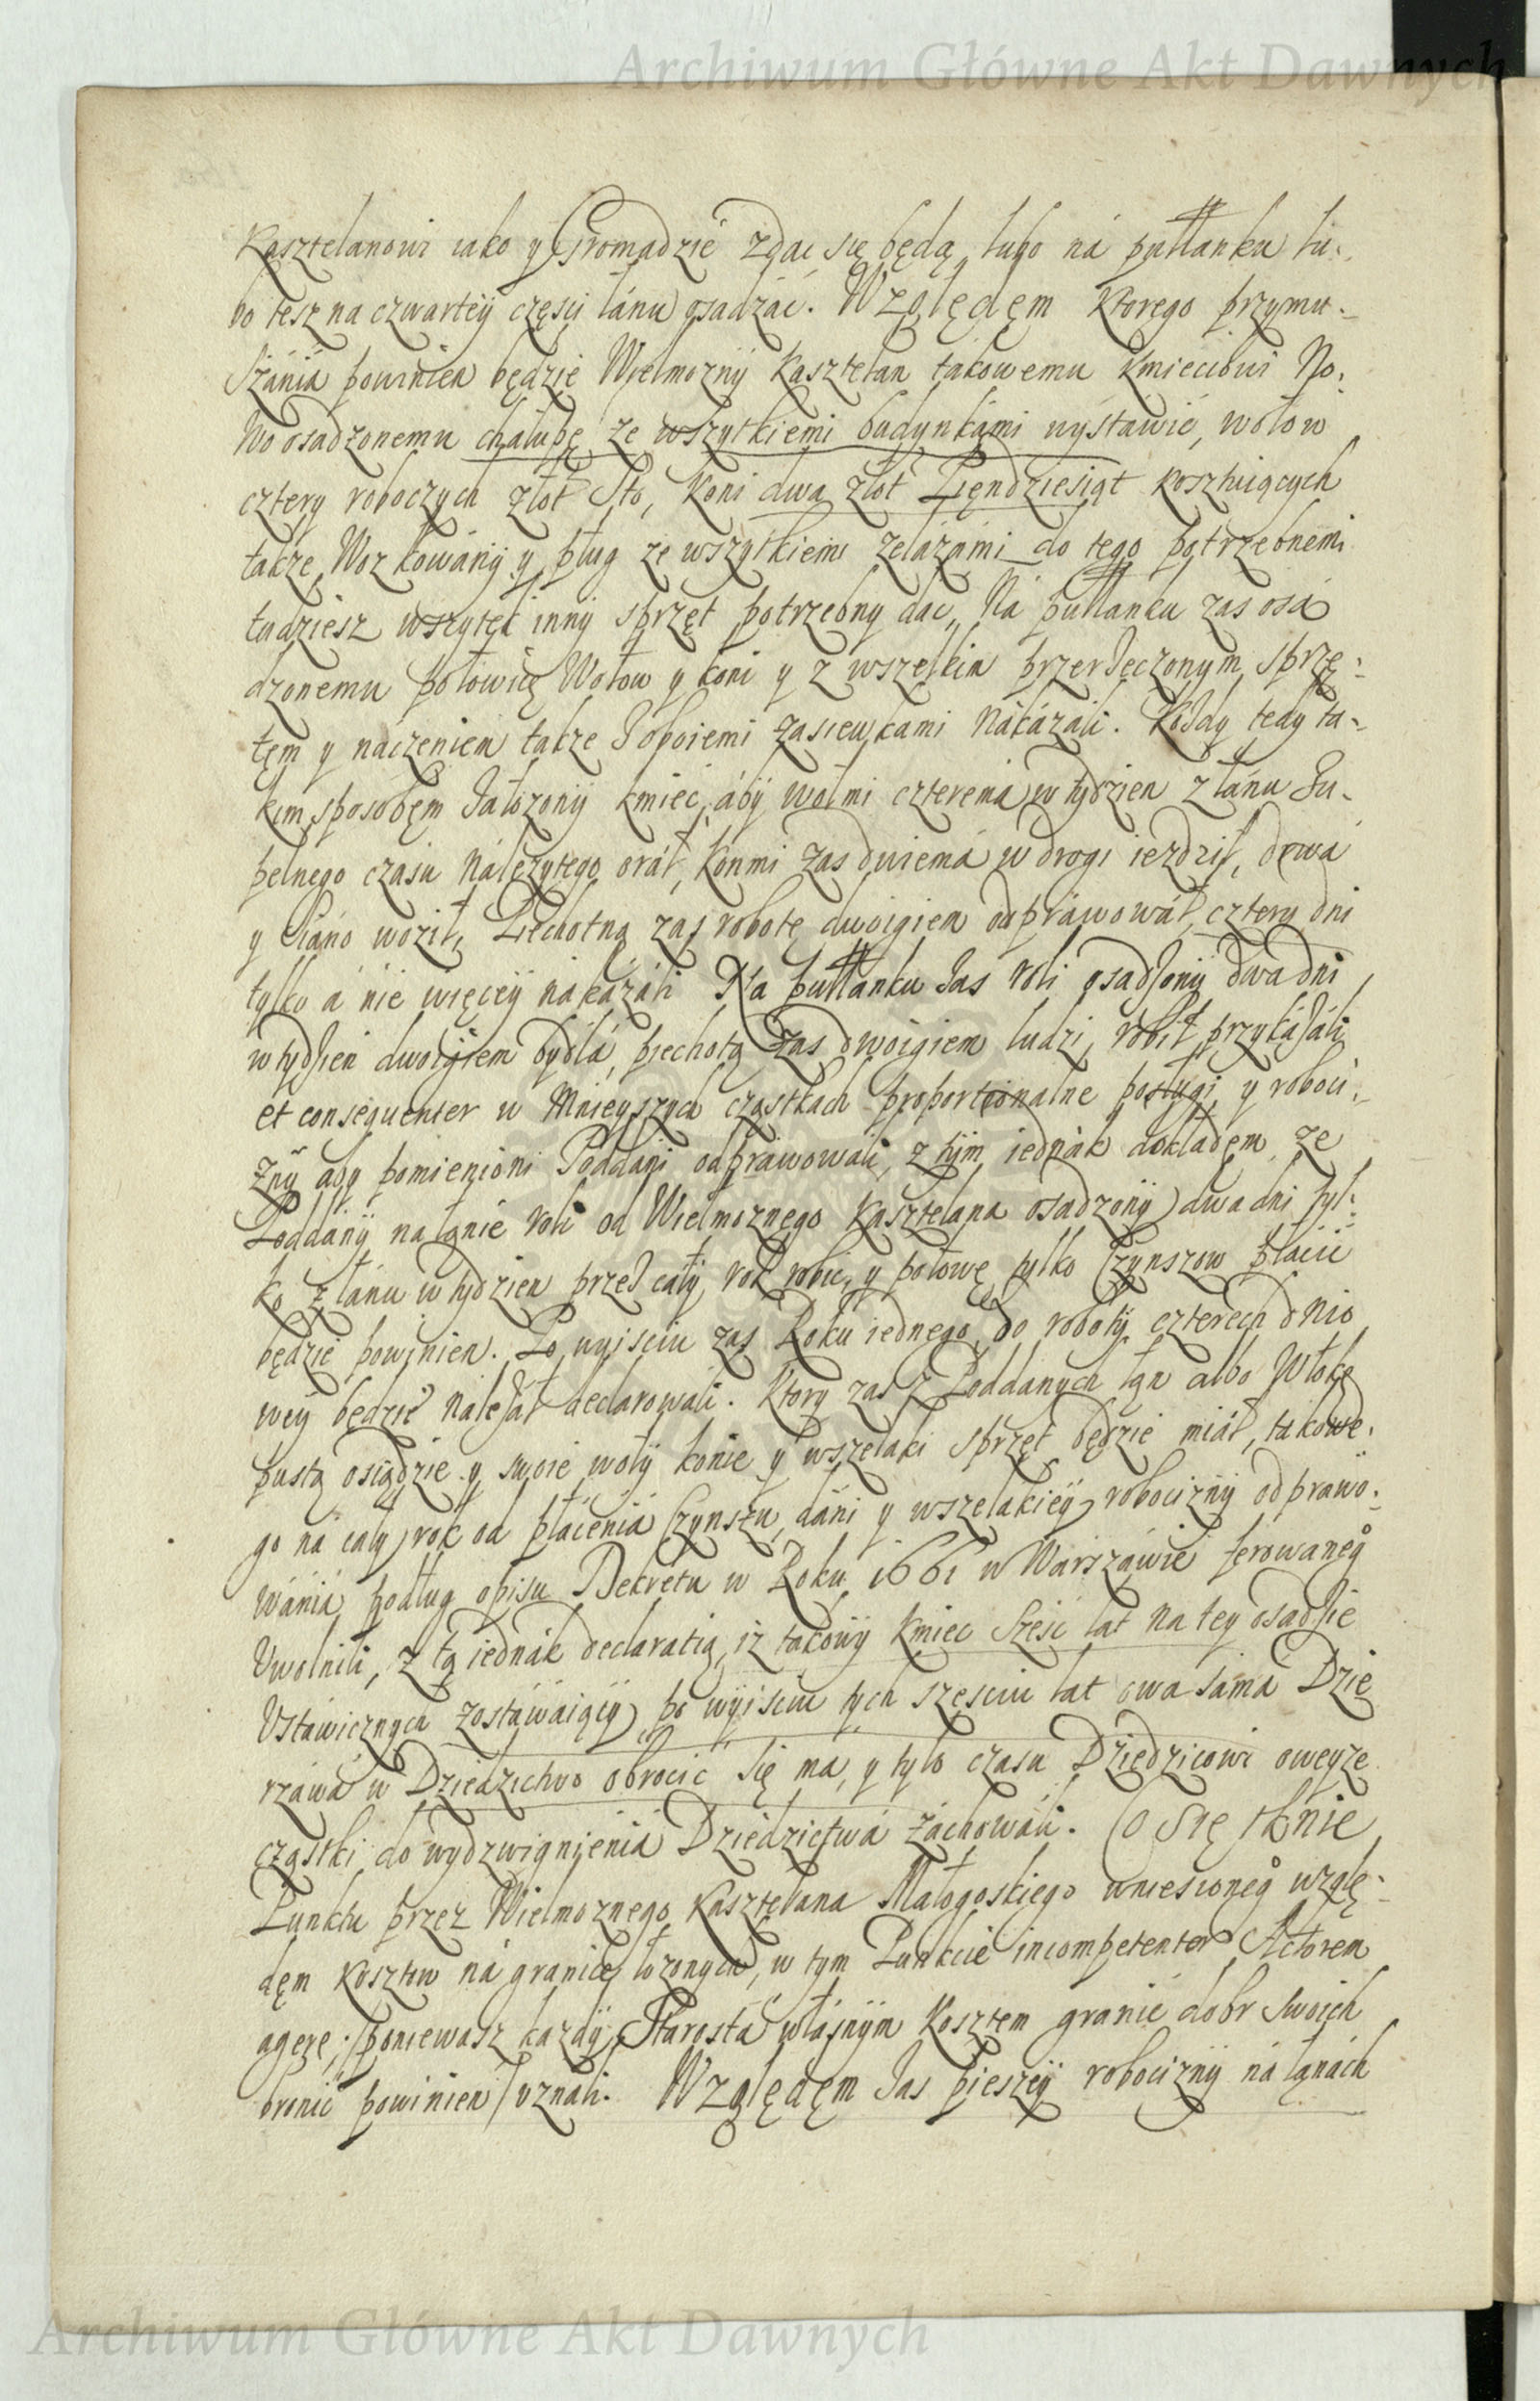 Archiwum Główne Akt Dawnych
Kasztelanowi iako y Gromadzie zdac się będą lubo ná pułłanku lu-
bo tesz na czwartey częsci łánu osadzác. Względęm ktorego przymu-
szániá powinien będzie Wielmozny Kasztelan tákowemu kmieciowi No-
wo osadzonemu chałupę ze wszytkiemi budynkámi wystáwic, wołow
cztery roboczych złot Sto, koni dwa złot Pięndziesiąt kosztuiących
tákze Woz kowány y pług ze wszytkiemi zelázámi do tego potrzebnemi
tudziesz wszytek inny sprzęt potrzebny dac, Ná pułłanku zas osá
dzonemu połowicę Wołow y koni y z wszelkim przerzeczonym sprzę-
tęm y naczeniem takze Zoboiemi zasiewkami nákázáli. Kozdy tedy ta-
kim sposobęm załozony kmiec, áby wołmi czterema w tydzien z łánu Zu-
pełnego czasu nálezytego orał, konmi zas dwiemá w drogi iezdził, drwá
y siáno woził, Piechotną zas robotę dwoigiem odpráwowáł, cztery dni
tylko á nie więcey nákázáli Na pułłanku zas roli osadzony dwa dni
w tydzien dwoigiem bydłá, piechotą zas dwoigiem ludzi robił przykázáli
et consequenter w Mnieyszych cząstkach proportionalne posługi y roboci-
zny aby pomienioni Poddani odprawowáli, z tym iednák dokładęm ze
Poddány na łanie roli od Wielmoznego Kasztelana osadzony dwa dni tyl-
ko z łánu w tydzien przez cały rok robic, y połowę tylko Czynszow płácic
będzie powinien. Po wyisciu zas Roku iednego do roboty czterech dnio
wey będzie nalezał declarowali. Ktory zas z Poddanych łan albo Włokę
pustą osiądzie y swoie woły konie y wszelaki sprzęt będzie miáł, takowe-
go ná cały rok od płáceniá Czynszu, dáni y wszelákiey robocizny odpráwo-
wániá podług opisu Dekretu w Roku 1661 w Warszáwie ferowaneg°
Uwolnili, z tą iednák declaratią, iz takowy kmiec szesc lat na tey osadzie
Ustáwicznych zostáwáiący po wyisciu tych szesciu lat owa sáma Dzie
rzáwá w Dziedzictwo obrocic się ma, y tylo czasu Dziedzicowi oweyze
cząstki do wydzwignieniá Dziedzictwá záchowáli. Co Się tknie
Punctu przez Wielmoznego Kasztelana Małogoskiego wniesioneg° wzglę-
dęm kosztow ná granicę łozonych, w tym Punkcie incompetenter Actorem
agere, /poniewasz kazdy Stárosta włásnym kosztem granic dobr swoich
bronic powinien/ uználi. Względęm zas pieszey robocizny ná łanách
Archiwum Główne Akt Dawnych